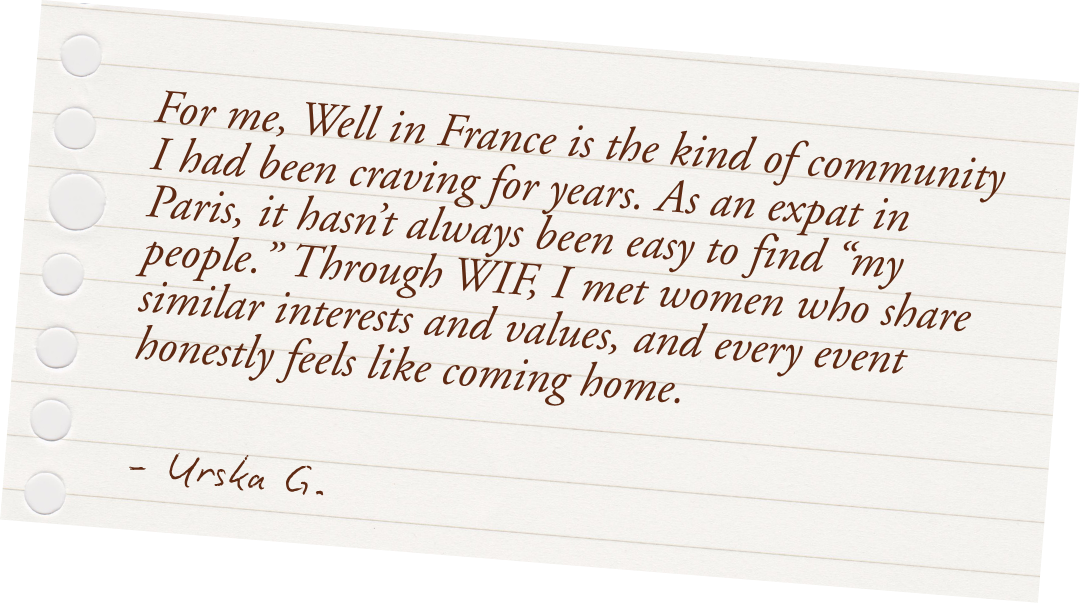 For me, Well in France is the kind of community
I had been craving for years. As an expat in
Paris, it hasn’t always been easy to find “my
people.” Through WIF, I met women who share
similar interests and values, and every event
honestly feels like coming home.
- Urska G.